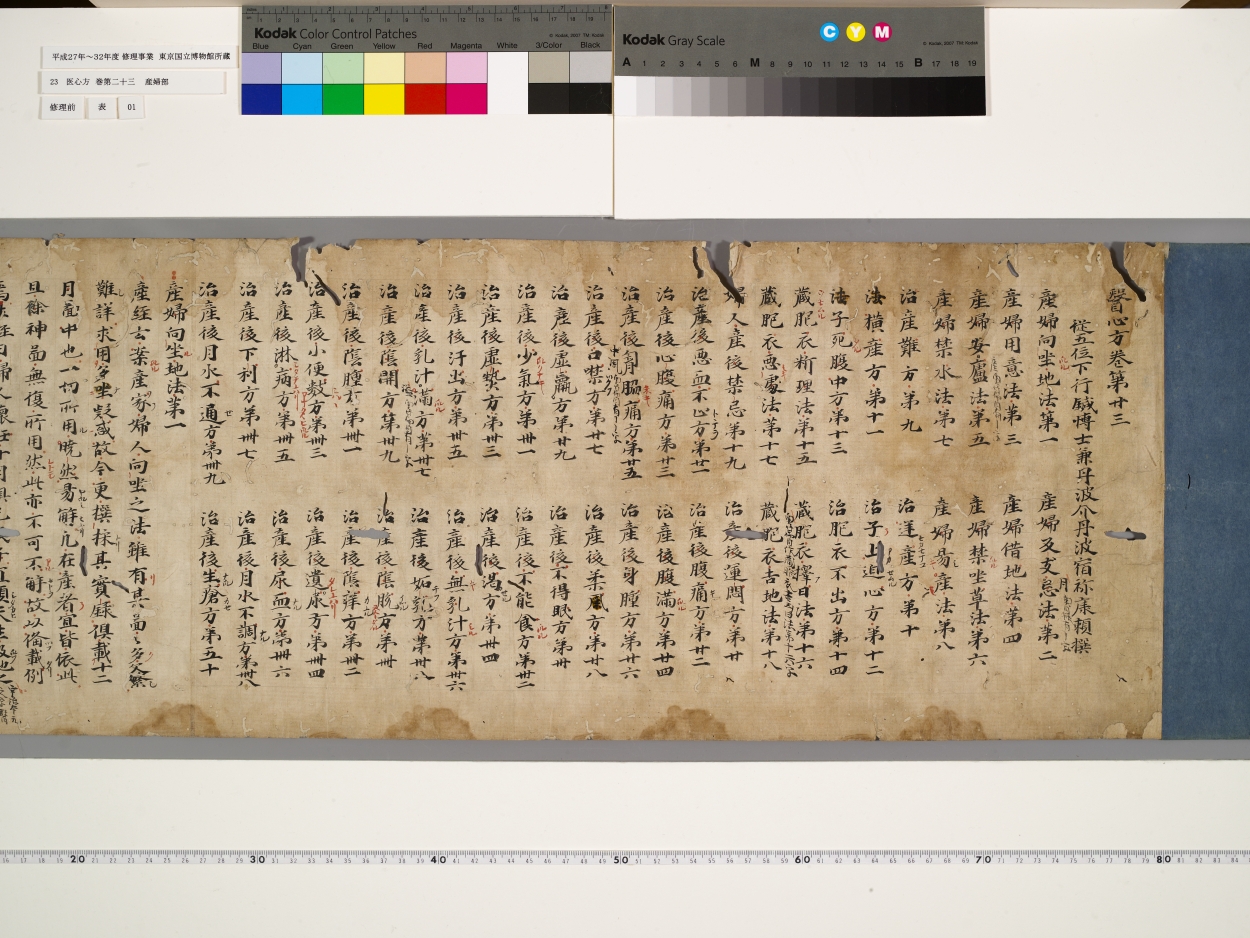 平成27年～32年度 修理事業 東京国立博物館所蔵
23 医心方 巻第二十三 産婦部
修理前 表 01
Kodak Color Control Patches
Blue Cyan Green Yellow Red Magenta White 3/Color Black
Kodak Gray Scale
C Y M
A 1 2 3 4 5 6 M 8 9 10 11 12 13 14 15 B 17 18 19
醫心方卷第廿三
從五位下行鍼博士兼丹波介丹波宿祢康頼撰
産婦向坐地法第一 産婦反支忌法第二
産婦用意法第三 産婦借地法第四
産婦安廬法第五 産婦禁坐草法第六
産婦禁水法第七 産婦易産法第八
治産難方第九 治逆産方第十
治横産方第十一 治子上迫心方第十二
治子死腹中方第十三 治胞衣不出方第十四
藏胞衣断理法第十五 藏胞衣擇日法第十六
藏胞衣悪處法第十七 藏胞衣吉地法第十八
婦人産後禁忌第十九 治産後運悶方第廿
治産後悪血不止方第廿一 治産後腹痛方第廿二
治産後心腹痛方第廿三 治産後腹満方第廿四
治産後胷脇痛方第廿五 治産後身腫方第廿六
治産後口噤方第廿七 治産後柔風方第廿八
治産後虚羸方第廿九 治産後不得眠方第卅
治産後少氣方第卅一 治産後不能食方第卅二
治産後虚𤍠方第卅三 治産後渇方第卅四
治産後汗出方第卅五 治産後無乳汁方第卅六
治産後乳汁満方第卅七 治産後妬乳方第卅八
治産後陰開方第卅九 治産後陰脱方第卌
治産後陰腫方第卌一 治産後陰痒方第卌二
治産後小便數方第卌三 治産後遺尿方第卌四
治産後淋病方第卌五 治産後尿血方第卌六
治産後下利方第卌七 治産後月水不調方第卌八
治産後月水不通方第卌九 治産後生瘡方第五十
産婦向坐地法第一
産經云案産家婦人向坐之法雖有其啚々多文繁
難詳求用多坐疑惑故今更撰採其實録俱載十二
月啚中也一切所用曉然易解凡在産者宜皆依此
且餘神啚無復所用然此亦不可不解故以備載例
20 30 40 50 60 70 80